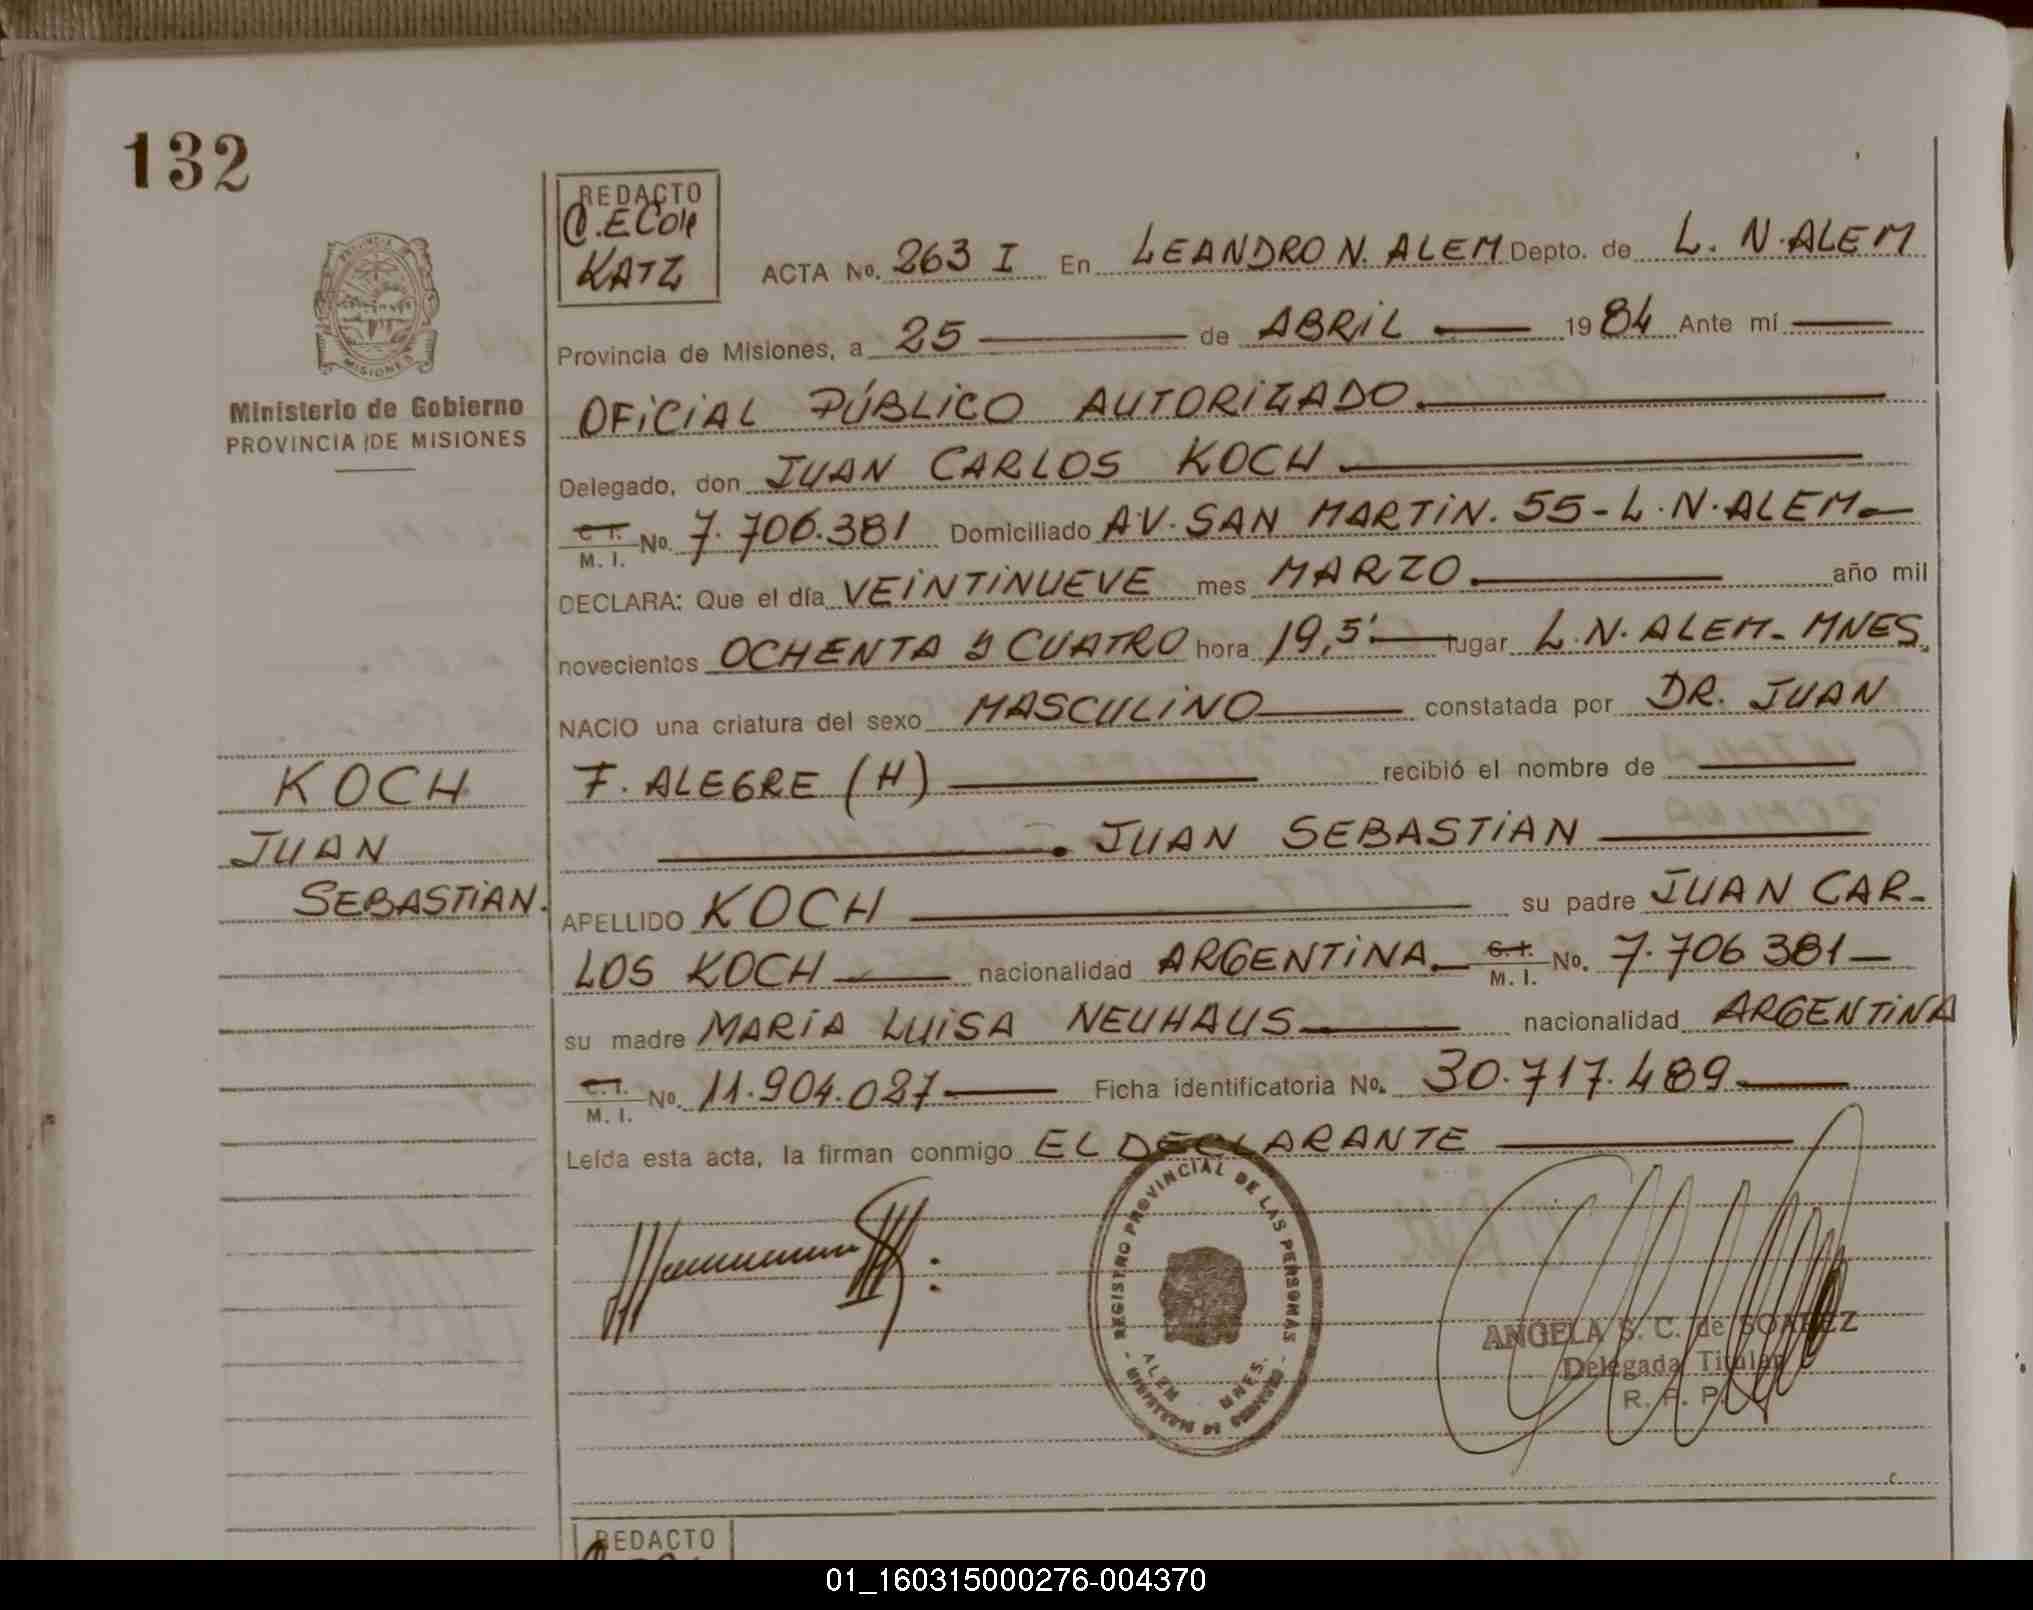 132
REDACTO
KATZ
ACTA No. 263 I En LEANDRO N. ALEM Depto. de L. N. ALEM
Provincia de Misiones, a 25 de ABRIL 1984 Ante mí
OFICIAL PÚBLICO AUTORIZADO.
Delegado, don JUAN CARLOS KOCH
C. I. M. I. No. 7.706.381 Domiciliado AV. SAN MARTIN. 55 - L. N. ALEM.
DECLARA: Que el día VEINTINUEVE mes MARZO. año mil
novecientos OCHENTA Y CUATRO hora 19,5' lugar L. N. ALEM - MNES.
NACIO una criatura del sexo MASCULINO constatada por DR. JUAN
F. ALEGRE (H) recibió el nombre de
. JUAN SEBASTIAN
APELLIDO KOCH su padre JUAN CAR-
LOS KOCH nacionalidad ARGENTINA. C. I. M. I. No. 7.706 381
su madre MARIA LUISA NEUHAUS nacionalidad ARGENTINA
C. I. M. I. No. 11.904.027 Ficha identificatoria No. 30.717.489
Leída esta acta, la firman conmigo EL DECLARANTE
PROVINCIA
MISIONES
Ministerio de Gobierno
PROVINCIA DE MISIONES
KOCH
JUAN
SEBASTIAN.
REGISTRO PROVINCIAL DE LAS PERSONAS
ALEM MNES.
ANGELA S. C. de SOAREZ
Delegada Titular
R. P. P.
REDACTO
01_160315000276-004370